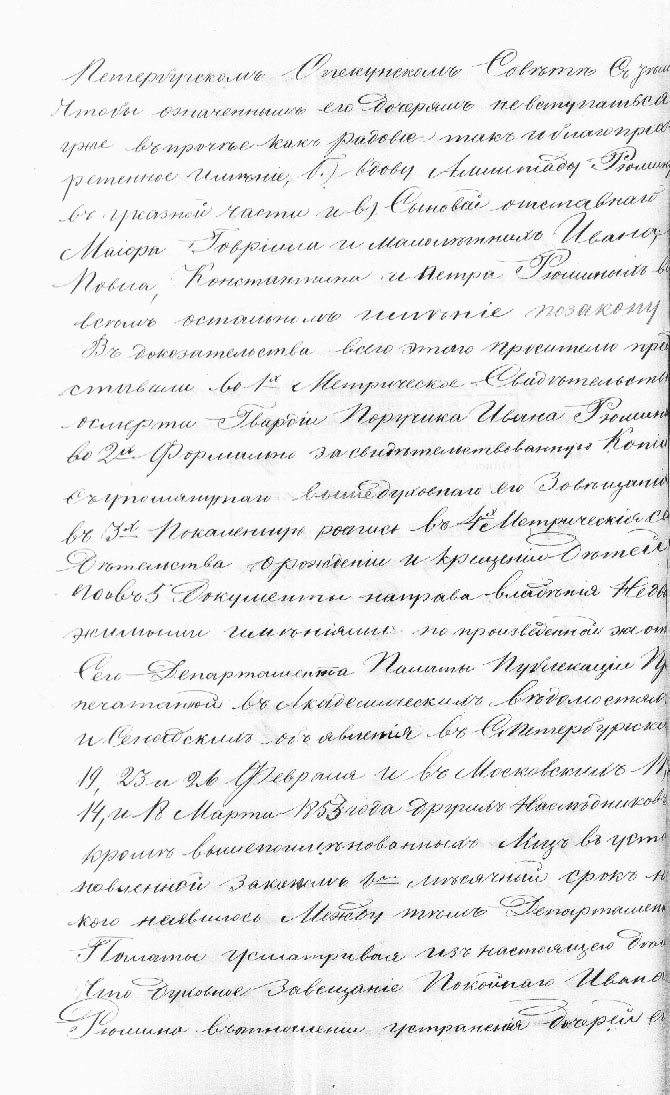 Петербургскомъ Опекунскомъ Совѣтѣ Съ
Чтобы означеннымъ его дочерямъ невступаться
уже въпрочее какъ родовое такъ и благопріоб
ретенное имѣніе, б) вдову Рюмину
въ указной части и в) Сыновей отставнаго
Маіора Гавріила и малолѣтнихъ Ивана,
Павла, Константина и Петра Рюминыхъ во
всемъ остальномъ имѣніе позакону
Въ доказательства всего этаго просители пред
ставили во 1х Метрическое Свидѣтельство
осмерти Гвардіи Поручика Ивана Рюмина
во 2х Формально засвидѣтельствованную Копію
съупомянутаго вышедуховнаго его Завѣщанія
въ 3х Покаленную роспись въ 4х Метрическія Сви
дѣтельства орожденіи и крещеніи Дѣтей
и въ 5 Документы направа владѣнія Недви
жимыми имѣніями по произведенной же отъ
Сего Департамента Палаты Публикаціи Пр
печатанной въ Академическихъ вѣдомостяхъ
и Сенатскихъ объявленія въ С.Петербургски
19, 23 и 26 Февраля и въ Московскихъ 11,
14, и 18 Марта 1853 года другихъ Наслѣдниковъ
кромѣ вышепоименованныхъ Лицъ въ уста
новленной Закономъ 6ти мѣсячный срокъ ни
кого неявилось Между тѣмъ Департаментъ
Палаты усматривая изъ настоящего дѣла
Что Духовное Завещаніе Покойнаго Ивана
Рюмина въотношеніи устраненія дочерей его